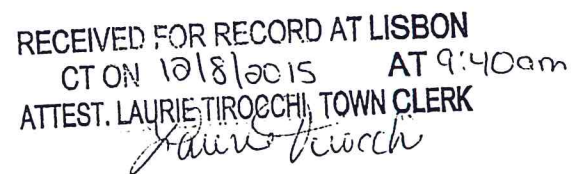 RECEIVED FOR RECORD AT LISBON
CT ON 12/8/2015 AT 9:40am
ATTEST. LAURIE TIROCCHI, TOWN CLERK
Laurie Tirocchi